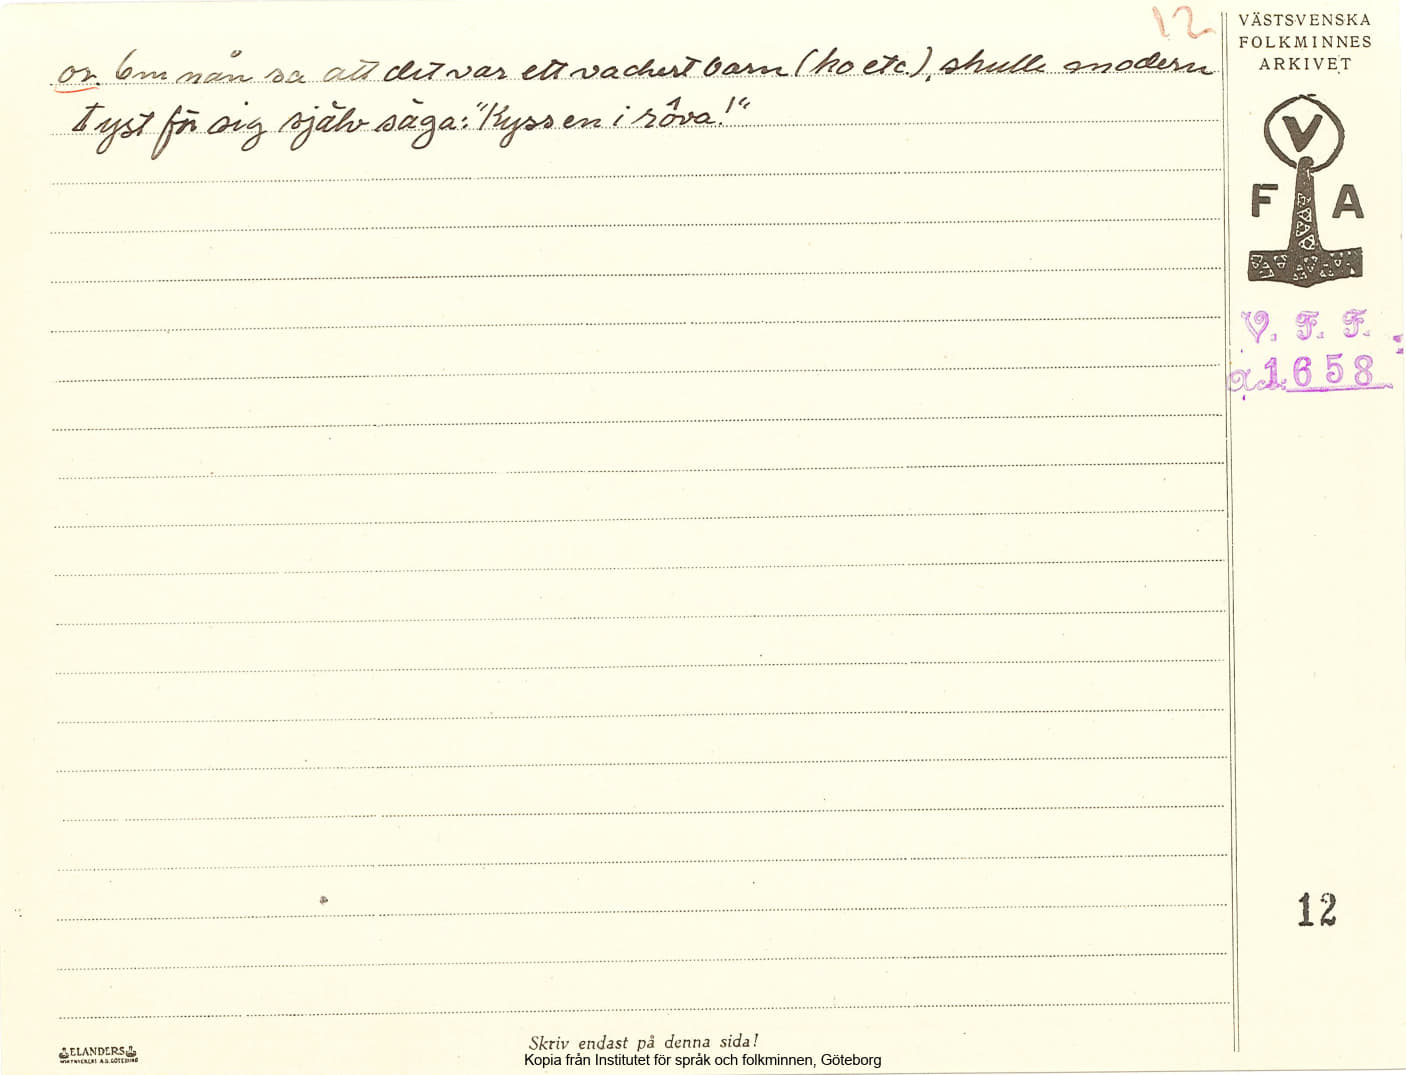 12
VÄSTSVENSKA
FOLKMINNES
ARKIVET
or. Om nån sa att det var ett vackert barn (ko etc.), skulle modern
tyst för sig själv säga: "Kyss en i röva!"
V
F A
V. F. F.
1658
12
ELANDERS
Skriv endast på denna sida!
Kopia från Institutet för språk och folkminnen, Göteborg